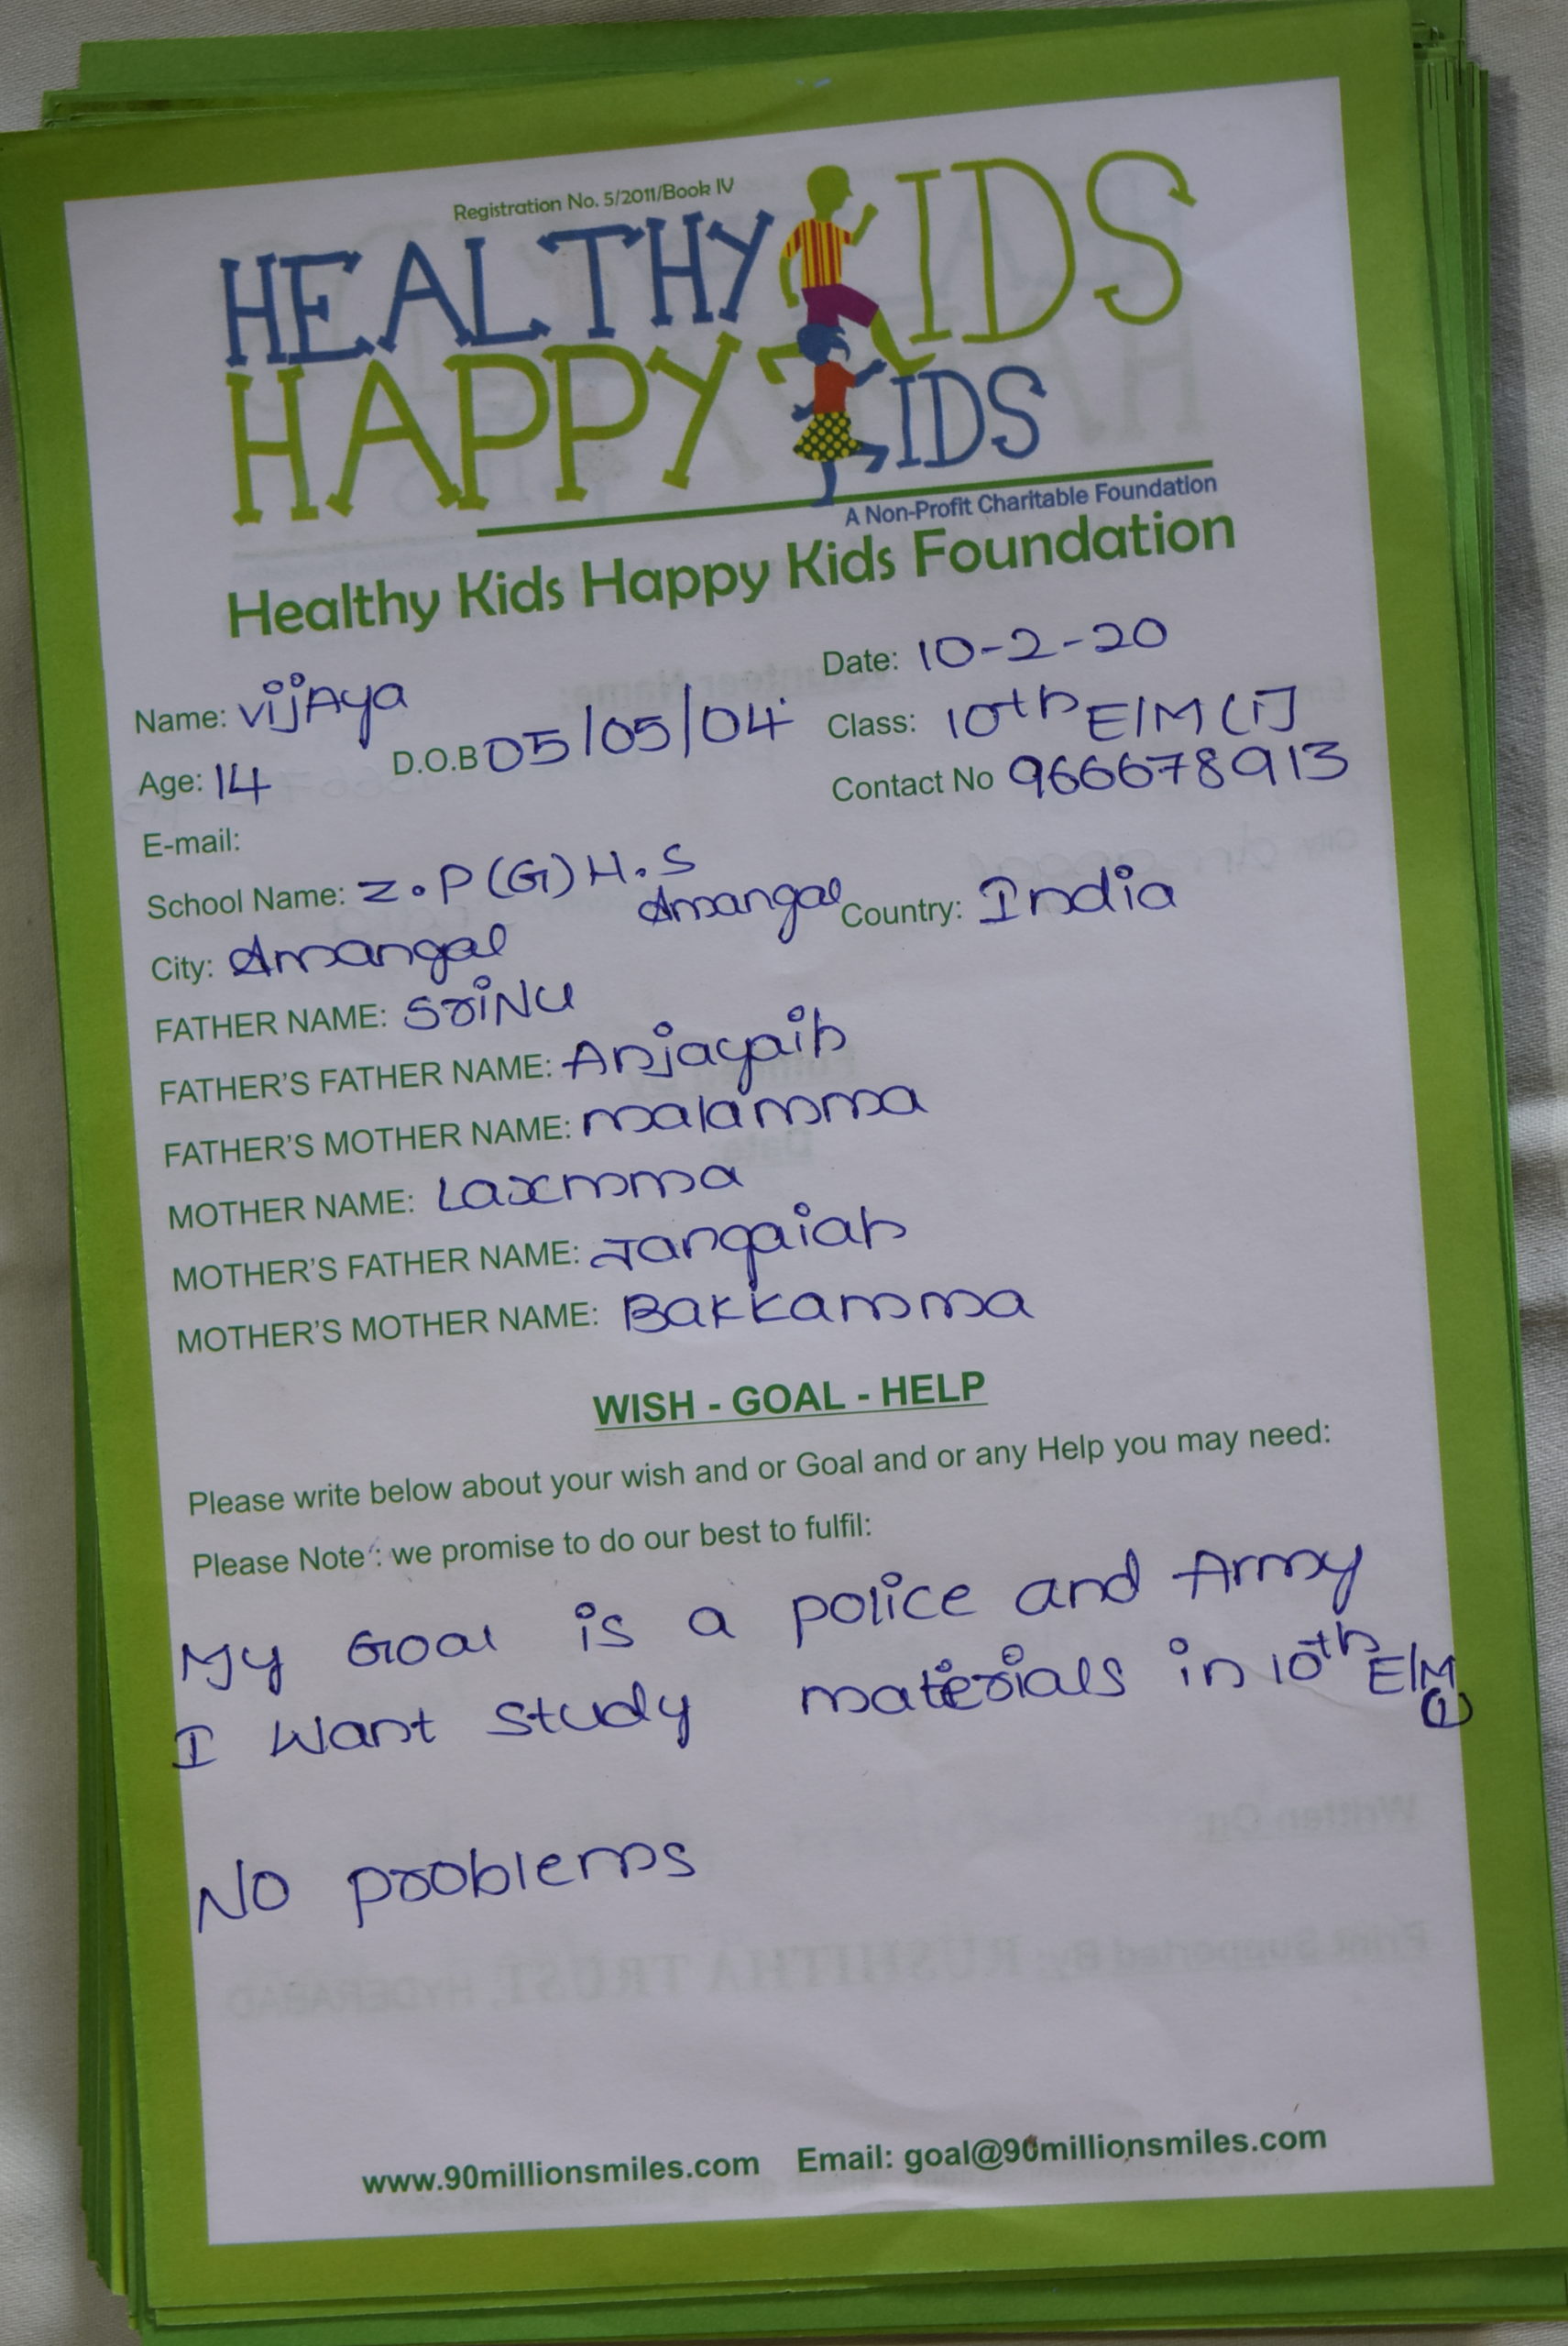 Registration No. 5/2011/Book IV
HEALTHY KIDS
HAPPY KIDS
A Non-Profit Charitable Foundation
Healthy Kids Happy Kids Foundation
Date: 10-2-20
Name: vijAya
D.O.B 05/05/04
Class: 10th E/M (i)
Age: 14
Contact No 966678913
E-mail:
School Name: Z.P(G)H.S
Amangal
City: Amangal
Country: India
FATHER NAME: SriNu
FATHER'S FATHER NAME: Anjayaih
FATHER'S MOTHER NAME: malamma
MOTHER NAME: Laxmma
MOTHER'S FATHER NAME: Jangaiah
MOTHER'S MOTHER NAME: Bakkamma
WISH - GOAL - HELP
Please write below about your wish and or Goal and or any Help you may need:
Please Note : we promise to do our best to fulfil:
My Goal is a police and Army
I Want study materials in 10th E/M
No problems
www.90millionsmiles.com Email: goal@90millionsmiles.com